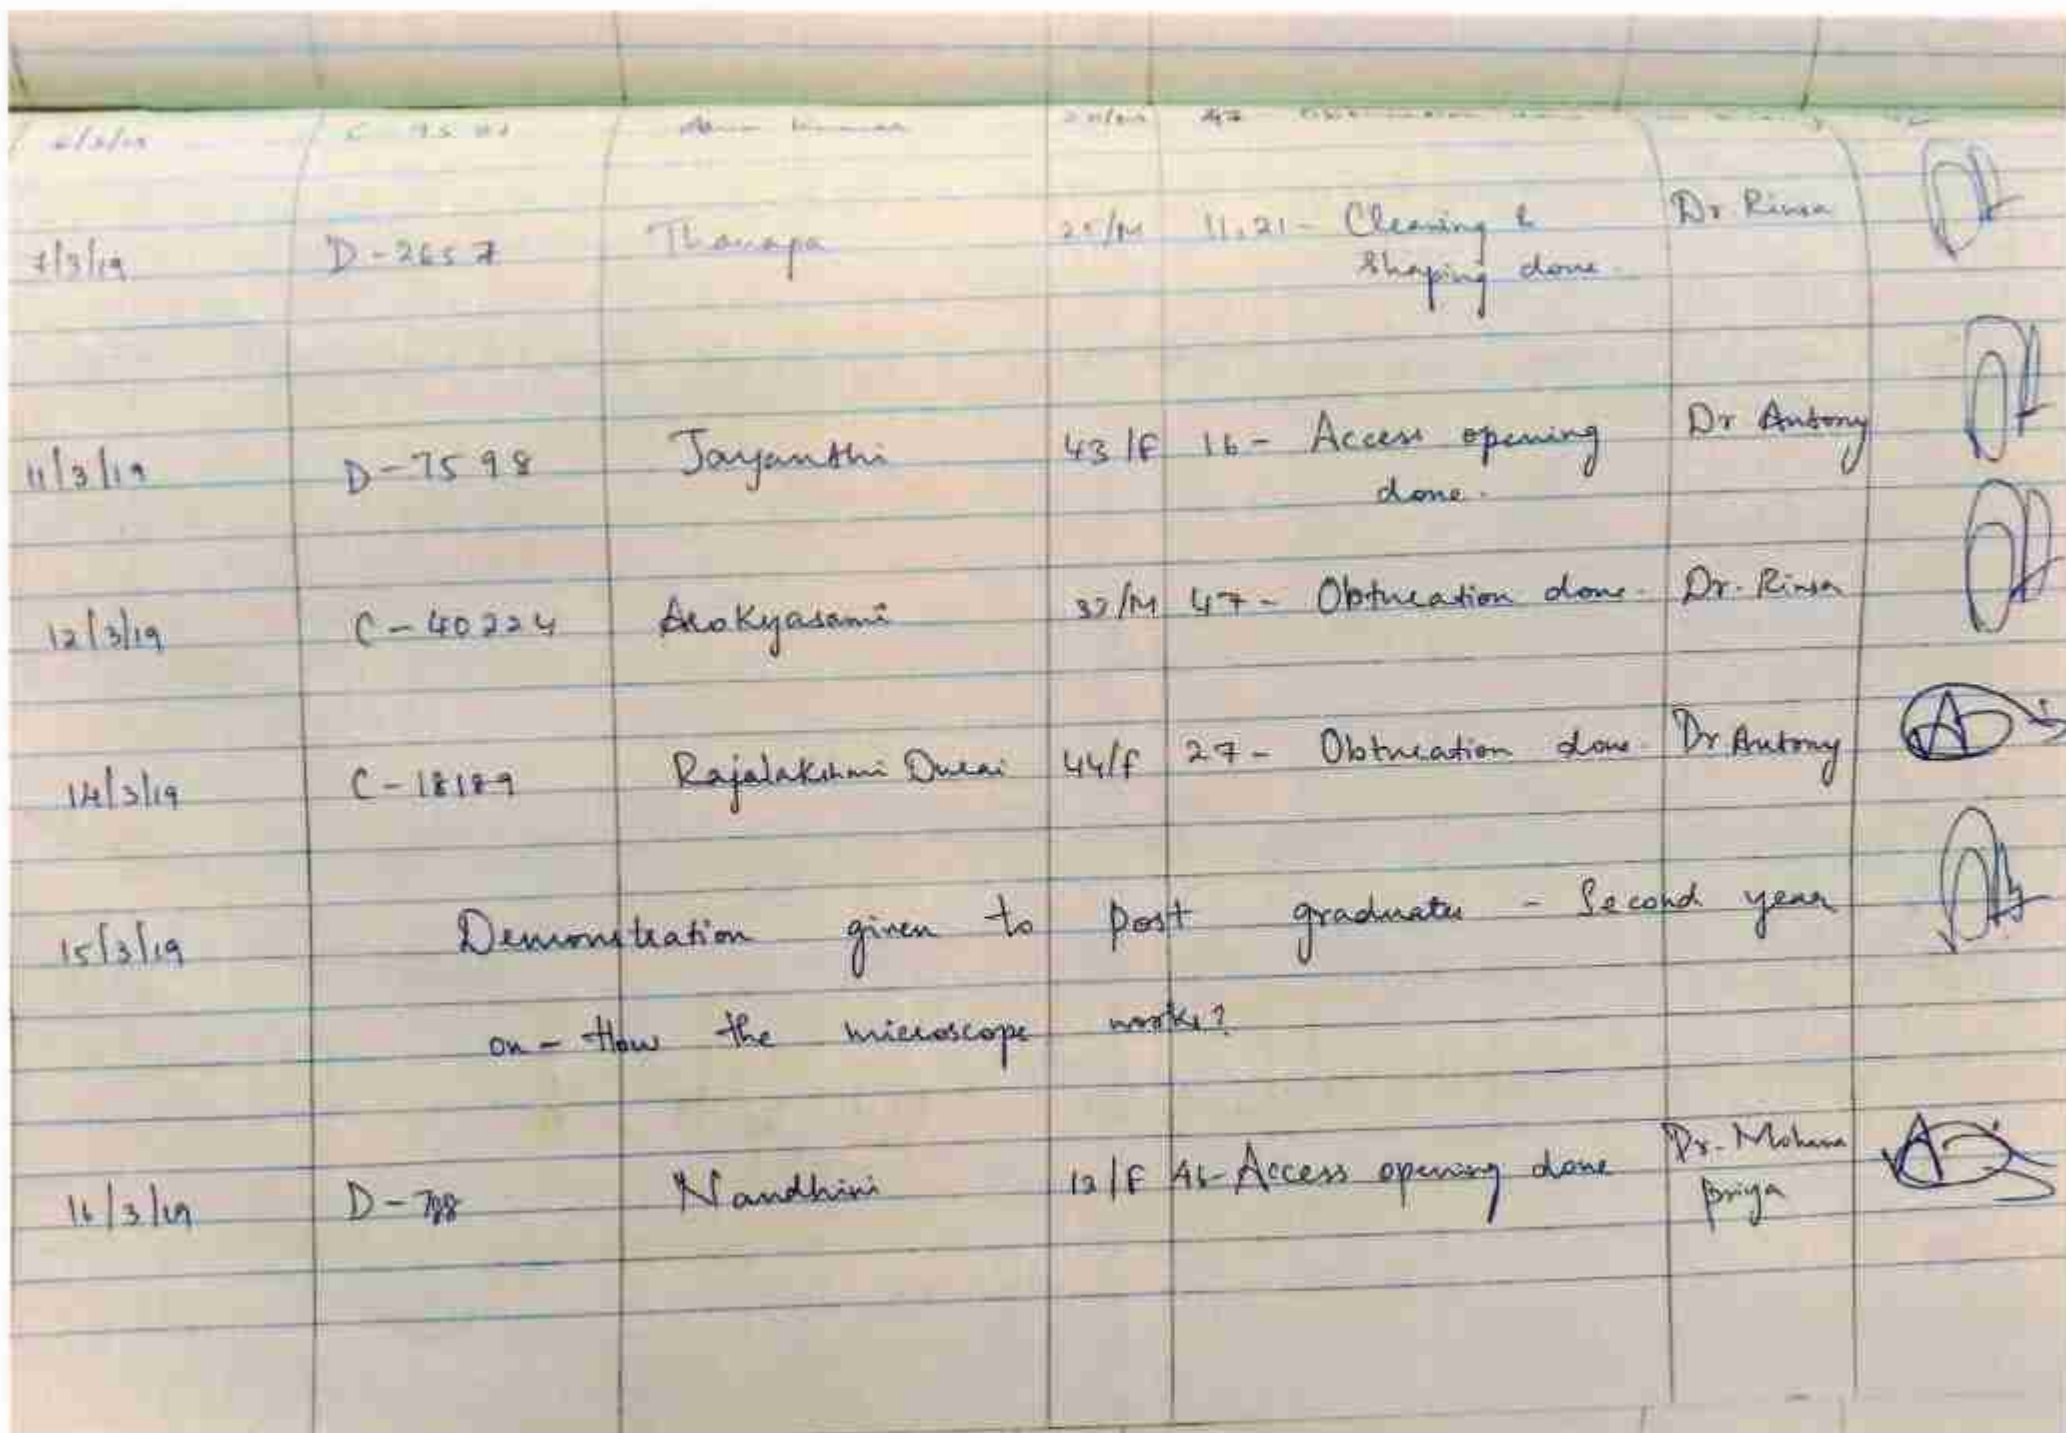 7/3/19 D-2657 Thanapa 25/M 11,21- Cleaning & Dr. Rinsa
Shaping done.
11/3/19 D-7598 Jayanthi 43/F 16- Access opening Dr Antony
done.
12/3/19 C-40224 Arokyasami 32/M 47- Obturation done. Dr. Rinsa
14/3/19 C-18189 Rajalakshmi Durai 44/F 27- Obturation done. Dr Antony
15/3/19 Demonstration given to post graduates - Second year
on - How the microscope works?
16/3/19 D-788 Nandhini 12/F 46- Access opening done Dr. Mohana
priya